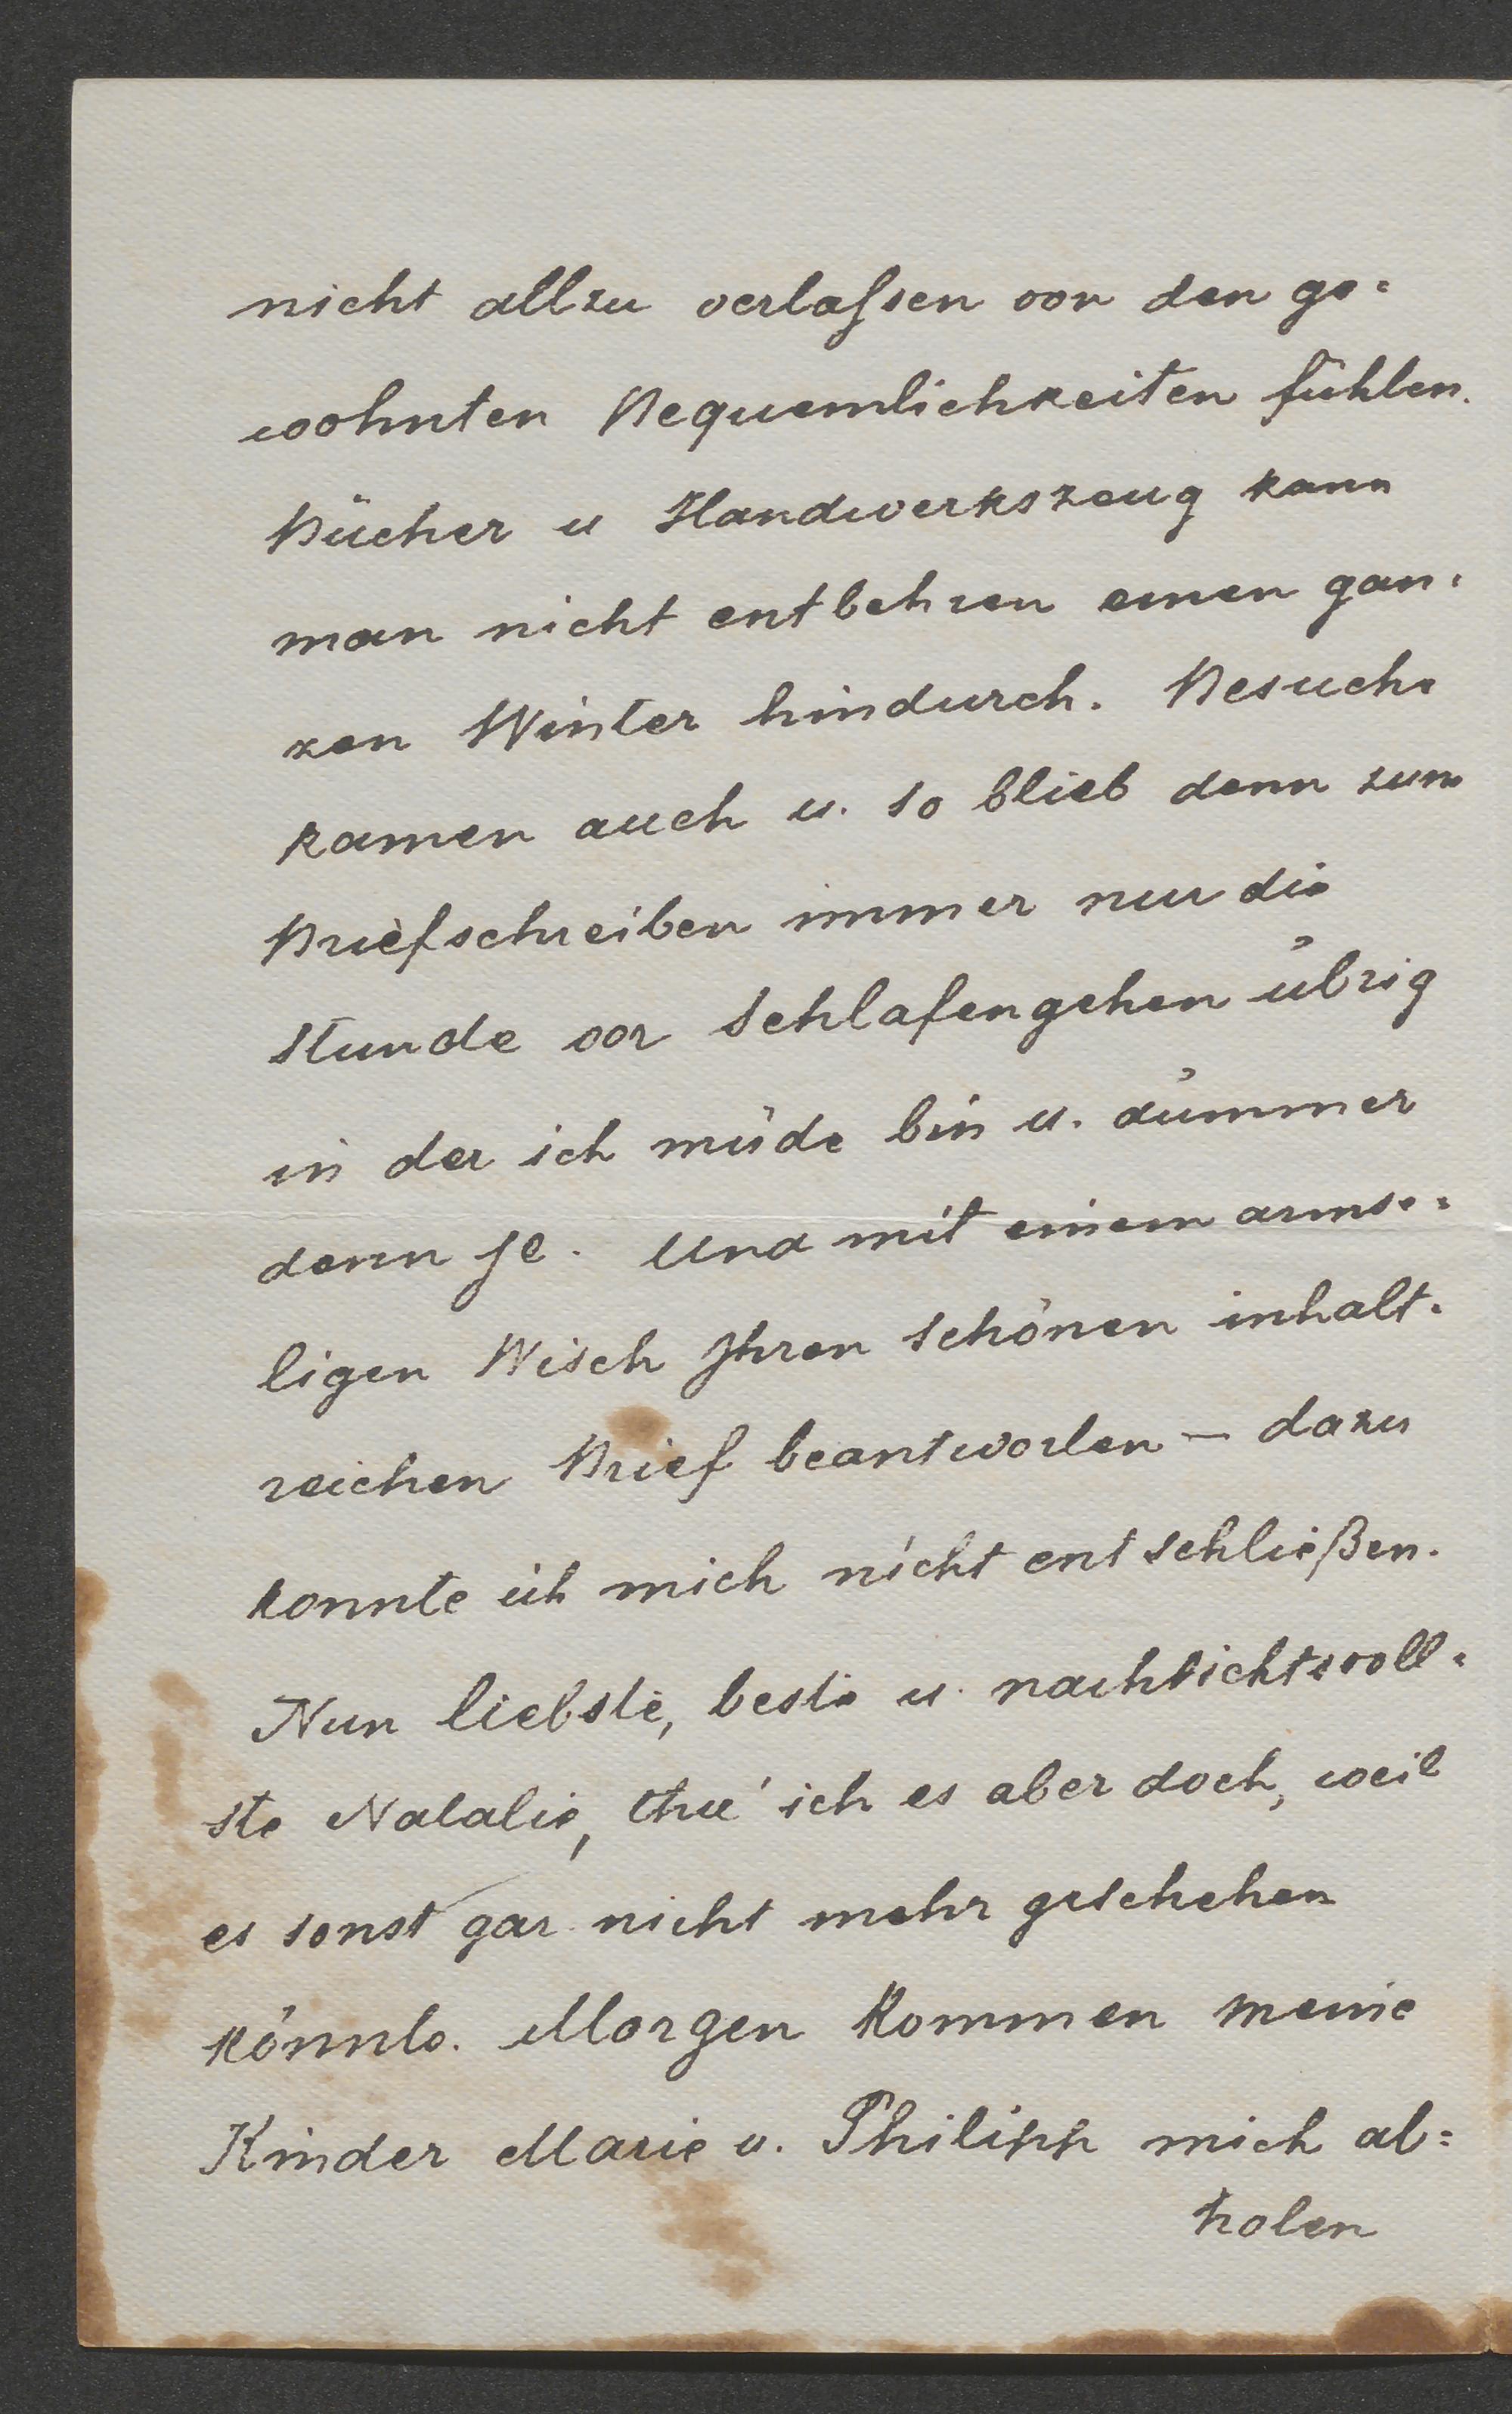 nicht allzu verlaßen von den ge=
wohnten Bequemlichkeiten fühlen.
Bücher u Handwerkszeug kann
man nicht entbehren einen gan=
zen Winter hindurch. Besuche
kamen auch u. so blieb denn zum
Briefschreiben immer nur die
Stunde vor Schlafengehen übrig
in der ich müde bin u. dümmer
denn je. Und mit einem armse=
ligen Wisch Ihren schönen inhalt=
reichen Brief beantworten – dazu
konnte ich mich nicht entschließen.
Nun liebste, beste u. nachsichtsvoll=
ste Natalie, thu' ich es aber doch, weil
es sonst gar nicht mehr geschehen
könnte. Morgen kommen meine
Kinder Marie u. Philipp mich ab=
holen